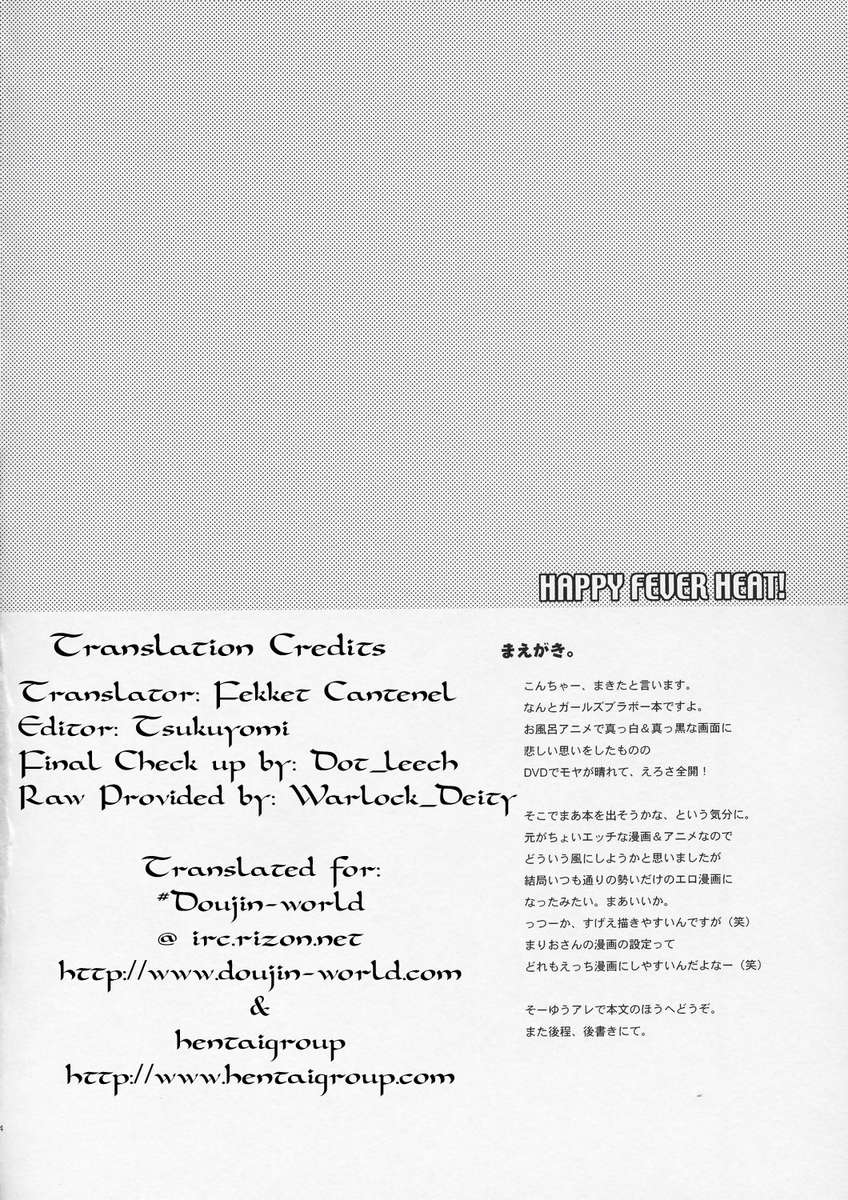 HAPPY FEVER HEAT!
Translation Credits
Translator: Fekket Cantenel
Editor: Tsukuyomi
Final Check up by: Dot_leech
Raw Provided by: Warlock_Deity
Translated for:
#Doujin-world
@ irc.rizon.net
http://www.doujin-world.com
&
hentaigroup
http://www.hentaigroup.com
まえがき。
こんちゃー、まきたと言います。
なんとガールズブラボー本ですよ。
お風呂アニメで真っ白&真っ黒な画面に
悲しい思いをしたものの
DVDでモヤが晴れて、えろさ全開!
そこでまあ本を出そうかな、という気分に。
元がちょいエッチな漫画&アニメなので
どういう風にしようかと思いましたが
結局いつも通りの勢いだけのエロ漫画に
なったみたい。まあいいか。
っつーか、すげえ描きやすいんですが(笑)
まりおさんの漫画の設定って
どれもえっち漫画にしやすいんだよなー(笑)
そーゆうアレで本文のほうへどうぞ。
また後程、後書きにて。
4